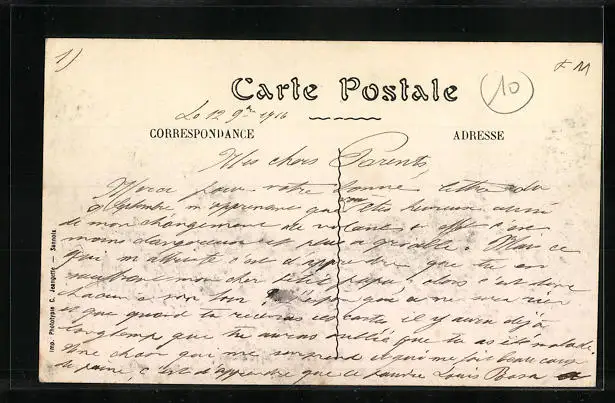 1)
F M
Carte Postale
10
Le 12 9bre 1916
CORRESPONDANCE
ADRESSE
Mes chers Parents,
Merci pour votre bonne lettre du
Septembre m'apprenant que vous êtes heureux aussi
de mon changement de
moins dangereux et plus agréable. Mais ce
qui m'attriste c'est d'apprendre que tu es
souffrant mon cher petit papa, alors c'est donc
chacun à son tour que ce ne sera rien
et que quand tu recevras ces cartes il y aura déjà
longtemps que tu auras oublié que tu as été malade.
Une chose qui me surprend et qui me fait beaucoup
de peine, c'est d'apprendre que ce pauvre Louis
Imp. Phototypie C. Jeangette — Sannois.